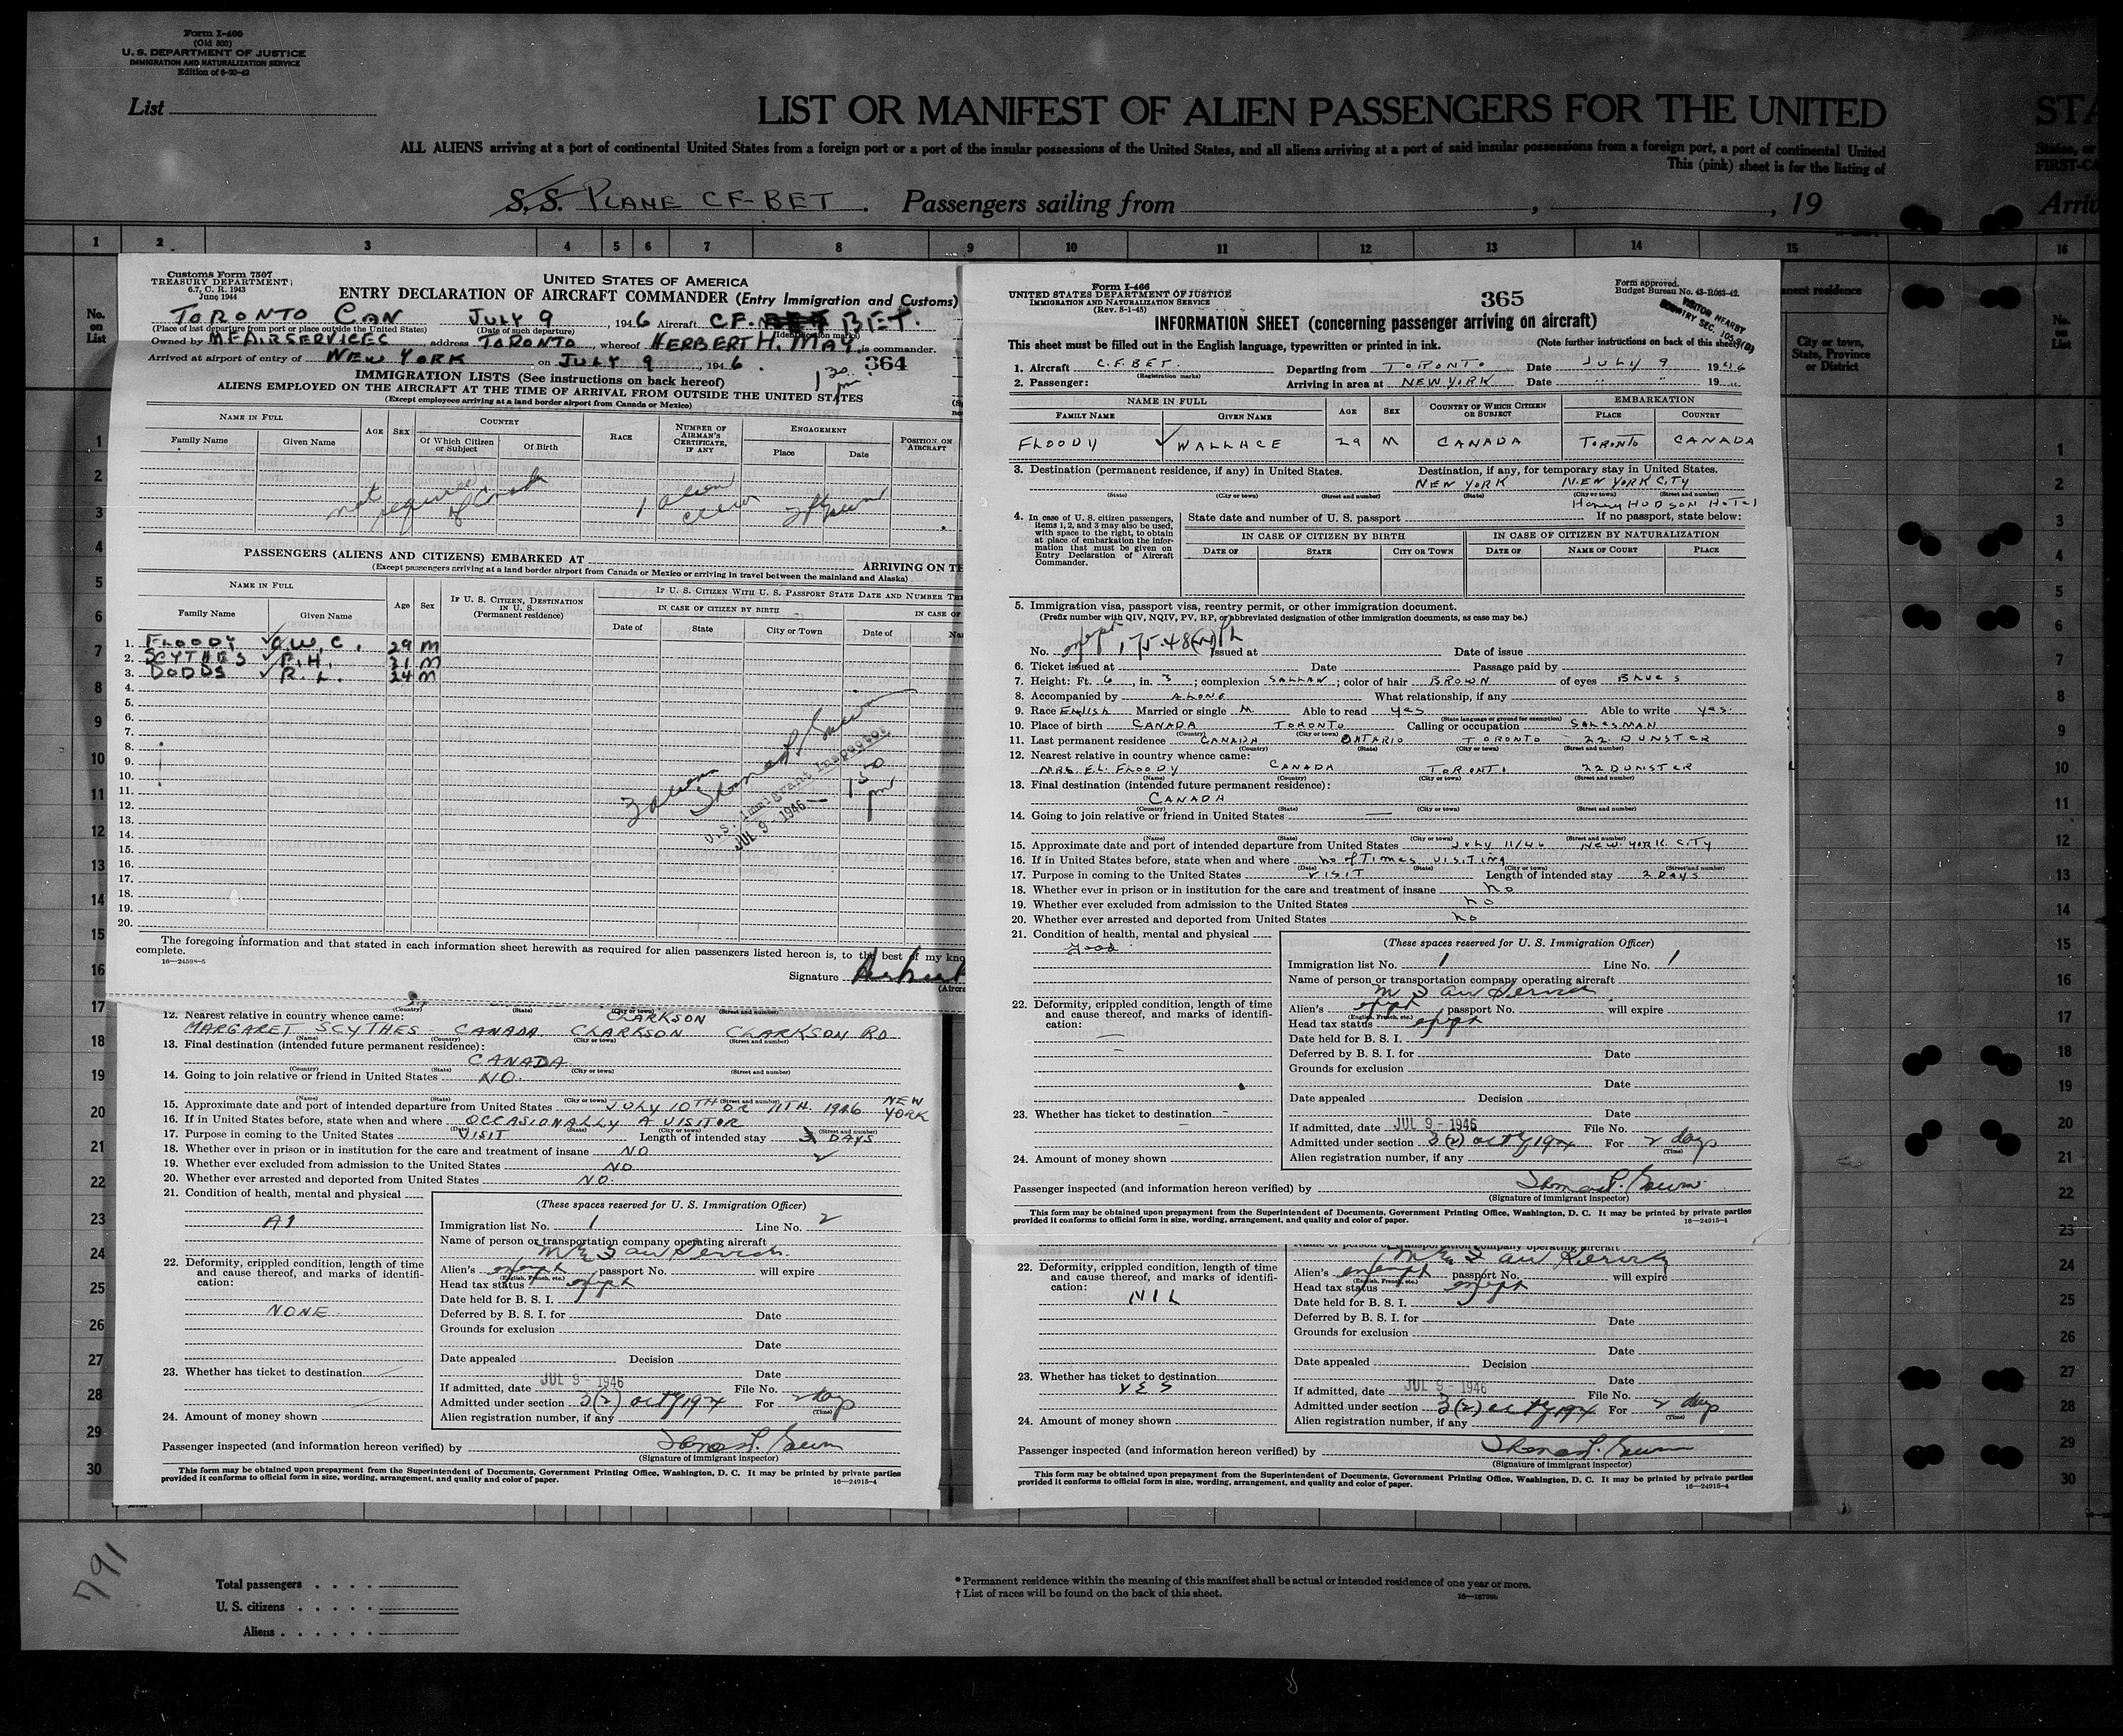 Form I-466
(Old 500)
U. S. DEPARTMENT OF JUSTICE
IMMIGRATION AND NATURALIZATION SERVICE
Edition of 6-20-43
List
LIST OR MANIFEST OF ALIEN PASSENGERS FOR THE UNITED
STA
ALL ALIENS arriving at a port of continental United States from a foreign port or a port of the insular possessions of the United States, and all aliens arriving at a port of said insular possessions from a foreign port, a port of continental United
States, or
This (pink) sheet is for the listing of
FIRST-CA
S.S. PLANE CF-BET. Passengers sailing from , , 19
Arriv
1 2 3 4 5 6 7 8 9 10 11 12 13 14 15 16
No. on List
Customs Form 7507
TREASURY DEPARTMENT
6.7, C. R. 1943
June 1944
UNITED STATES OF AMERICA
ENTRY DECLARATION OF AIRCRAFT COMMANDER (Entry Immigration and Customs)
TORONTO CAN JULY 9, 1946 Aircraft CF. BET.
(Place of last departure from port or place outside the United States) (Date of such departure) (Identification marks)
Owned by MFAIRSERVICES, address TORONTO, whereof HERBERT H. MAY, is commander.
Arrived at airport of entry of NEW YORK on JULY 9, 1946. 364
1 30 pm
IMMIGRATION LISTS (See instructions on back hereof)
ALIENS EMPLOYED ON THE AIRCRAFT AT THE TIME OF ARRIVAL FROM OUTSIDE THE UNITED STATES
(Except employees arriving at a land border airport from Canada or Mexico)
NAME IN FULL AGE SEX COUNTRY RACE NUMBER OF AIRMAN'S CERTIFICATE, IF ANY ENGAGEMENT POSITION ON AIRCRAFT
Family Name Given Name Of Which Citizen or Subject Of Birth Place Date
not required of Canada 1 alien crew
PASSENGERS (ALIENS AND CITIZENS) EMBARKED AT ARRIVING ON TH
(Except passengers arriving at a land border airport from Canada or Mexico or arriving in travel between the mainland and Alaska)
NAME IN FULL Age Sex IF U. S. CITIZEN, DESTINATION IN U. S. (Permanent residence) IF U. S. CITIZEN WITH U. S. PASSPORT STATE DATE AND NUMBER TH
Family Name Given Name IN CASE OF CITIZEN BY BIRTH IN CASE OF
Date of State City or Town Date of Na
1. FLOODY C.W.C. 29 M
2. SCYTHES P.H. 31 M
3. DODDS R.L. 24 M
4.
5.
6.
7.
8.
9.
10.
11.
12.
13.
14.
15.
16.
17.
18.
19.
20.
3 aliens
U.S. Immigrant Inspector
JUL 9 - 1946
1 50 pm
The foregoing information and that stated in each information sheet herewith as required for alien passengers listed hereon is, to the best of my kno
complete.
16-24598-5
Signature
(Aircra
CLARKSON
(Country) (State) (City or town) (Street and number)
12. Nearest relative in country whence came:
MARGARET SCYTHES CANADA CLARKSON CLARKSON RD
(Name) (Country) (City or town) (Street and number)
13. Final destination (intended future permanent residence):
CANADA
(Country) (State) (City or town) (Street and number)
14. Going to join relative or friend in United States NO.
(Name) (State) (City or town) (Street and number)
15. Approximate date and port of intended departure from United States JULY 10TH OR 11TH. 1946 NEW YORK
16. If in United States before, state when and where OCCASIONALLY A VISITOR
(Date) (State) (City or town) (Street and number)
17. Purpose in coming to the United States VISIT Length of intended stay 3 DAYS
2
18. Whether ever in prison or in institution for the care and treatment of insane NO
19. Whether ever excluded from admission to the United States NO
20. Whether ever arrested and deported from United States NO.
21. Condition of health, mental and physical
A1
(These spaces reserved for U. S. Immigration Officer)
Immigration list No. 1 Line No. 2
Name of person or transportation company operating aircraft
22. Deformity, crippled condition, length of time and cause thereof, and marks of identification:
NONE
Alien's exempt passport No. will expire
(English, French, etc.)
Head tax status exempt
Date held for B. S. I.
Deferred by B. S. I. for Date
Grounds for exclusion
Date
Date appealed Decision
23. Whether has ticket to destination
Date
If admitted, date JUL 9 - 1946 File No.
Admitted under section 3(2) act of 1924 For 2 days
(Time)
24. Amount of money shown
Alien registration number, if any
Passenger inspected (and information hereon verified) by
(Signature of immigrant inspector)
This form may be obtained upon prepayment from the Superintendent of Documents, Government Printing Office, Washington, D. C. It may be printed by private parties
provided it conforms to official form in size, wording, arrangement, and quality and color of paper. 16-24915-4
Form I-466
UNITED STATES DEPARTMENT OF JUSTICE
IMMIGRATION AND NATURALIZATION SERVICE
(Rev. 8-1-45)
365
Form approved.
Budget Bureau No. 43-R063-42.
VISITOR NEARBY
COUNTRY SEC.
INFORMATION SHEET (concerning passenger arriving on aircraft)
This sheet must be filled out in the English language, typewritten or printed in ink. (Note further instructions on back of this sheet)
1. Aircraft C.F.BET. Departing from TORONTO Date JULY 9 1946
(Registration marks)
2. Passenger: Arriving in area at NEW YORK Date " " 19 "
NAME IN FULL AGE SEX COUNTRY OF WHICH CITIZEN OR SUBJECT EMBARKATION
FAMILY NAME GIVEN NAME PLACE COUNTRY
FLOODY WALLACE 29 M CANADA TORONTO CANADA
3. Destination (permanent residence, if any) in United States. Destination, if any, for temporary stay in United States.
NEW YORK N.EN YORK CITY
(State) (City or town) (Street and number) (State) (City or town) (Street and number)
Henry HUDSON HOTEL
4. In case of U. S. citizen passengers, items 1, 2, and 3 may also be used, with space to the right, to obtain at place of embarkation the information that must be given on Entry Declaration of Aircraft Commander.
State date and number of U. S. passport If no passport, state below:
IN CASE OF CITIZEN BY BIRTH IN CASE OF CITIZEN BY NATURALIZATION
DATE OF STATE CITY OR TOWN DATE OF NAME OF COURT PLACE
5. Immigration visa, passport visa, reentry permit, or other immigration document.
(Prefix number with QIV, NQIV, PV, RP, or abbreviated designation of other immigration documents, as case may be.)
No. exempt 175.48 Issued at Date of issue
6. Ticket issued at Date Passage paid by
7. Height: Ft. 6, in. 3; complexion SALLAW; color of hair BROWN of eyes BLUES
8. Accompanied by ALONE What relationship, if any
9. Race English Married or single M. Able to read yes Able to write yes.
(State language or ground for exemption)
10. Place of birth CANADA TORONTO Calling or occupation SALESMAN
(Country) (City or town)
11. Last permanent residence CANADA ONTARIO TORONTO 22 DUNSTER
(Country) (State) (City or town) (Street and number)
12. Nearest relative in country whence came:
MRS. E.L. FLOODY CANADA TORONTO 22 DUNSTER
(Name) (Country) (City or town) (Street and number)
13. Final destination (intended future permanent residence):
CANADA
(Country) (State) (City or town) (Street and number)
14. Going to join relative or friend in United States —
(Name) (State) (City or town) (Street and number)
15. Approximate date and port of intended departure from United States JULY 11/46 NEW YORK CITY
16. If in United States before, state when and where No of Times VISITING
(Date) (State) (City or town) (Street and number)
17. Purpose in coming to the United States VISIT Length of intended stay 2 DAYS
18. Whether ever in prison or in institution for the care and treatment of insane No
19. Whether ever excluded from admission to the United States No
20. Whether ever arrested and deported from United States No
21. Condition of health, mental and physical
good
(These spaces reserved for U. S. Immigration Officer)
Immigration list No. 1 Line No. 1
Name of person or transportation company operating aircraft
22. Deformity, crippled condition, length of time and cause thereof, and marks of identification:
Alien's exempt passport No. will expire
(English, French, etc.)
Head tax status exempt
Date held for B. S. I.
Deferred by B. S. I. for Date
Grounds for exclusion
Date
Date appealed Decision
23. Whether has ticket to destination
Date
If admitted, date JUL 9 - 1946 File No.
Admitted under section 3(2) act of 1924 For 2 days
(Time)
24. Amount of money shown
Alien registration number, if any
Passenger inspected (and information hereon verified) by
(Signature of immigrant inspector)
This form may be obtained upon prepayment from the Superintendent of Documents, Government Printing Office, Washington, D. C. It may be printed by private parties
provided it conforms to official form in size, wording, arrangement, and quality and color of paper. 16-24915-4
Name of person or transportation company operating aircraft
22. Deformity, crippled condition, length of time and cause thereof, and marks of identification:
NIL
Alien's exempt passport No. will expire
(English, French, etc.)
Head tax status exempt
Date held for B. S. I.
Deferred by B. S. I. for Date
Grounds for exclusion
Date
Date appealed Decision
23. Whether has ticket to destination
YES
Date
If admitted, date JUL 9 - 1946 File No.
Admitted under section 3(2) act of 1924 For 2 days
(Time)
24. Amount of money shown
Alien registration number, if any
Passenger inspected (and information hereon verified) by
(Signature of immigrant inspector)
This form may be obtained upon prepayment from the Superintendent of Documents, Government Printing Office, Washington, D. C. It may be printed by private parties
provided it conforms to official form in size, wording, arrangement, and quality and color of paper. 16-24915-4
anent residence
City or town, State, Province or District
No. on List
791
Total passengers
U. S. citizens
Aliens
* Permanent residence within the meaning of this manifest shall be actual or intended residence of one year or more.
† List of races will be found on the back of this sheet.